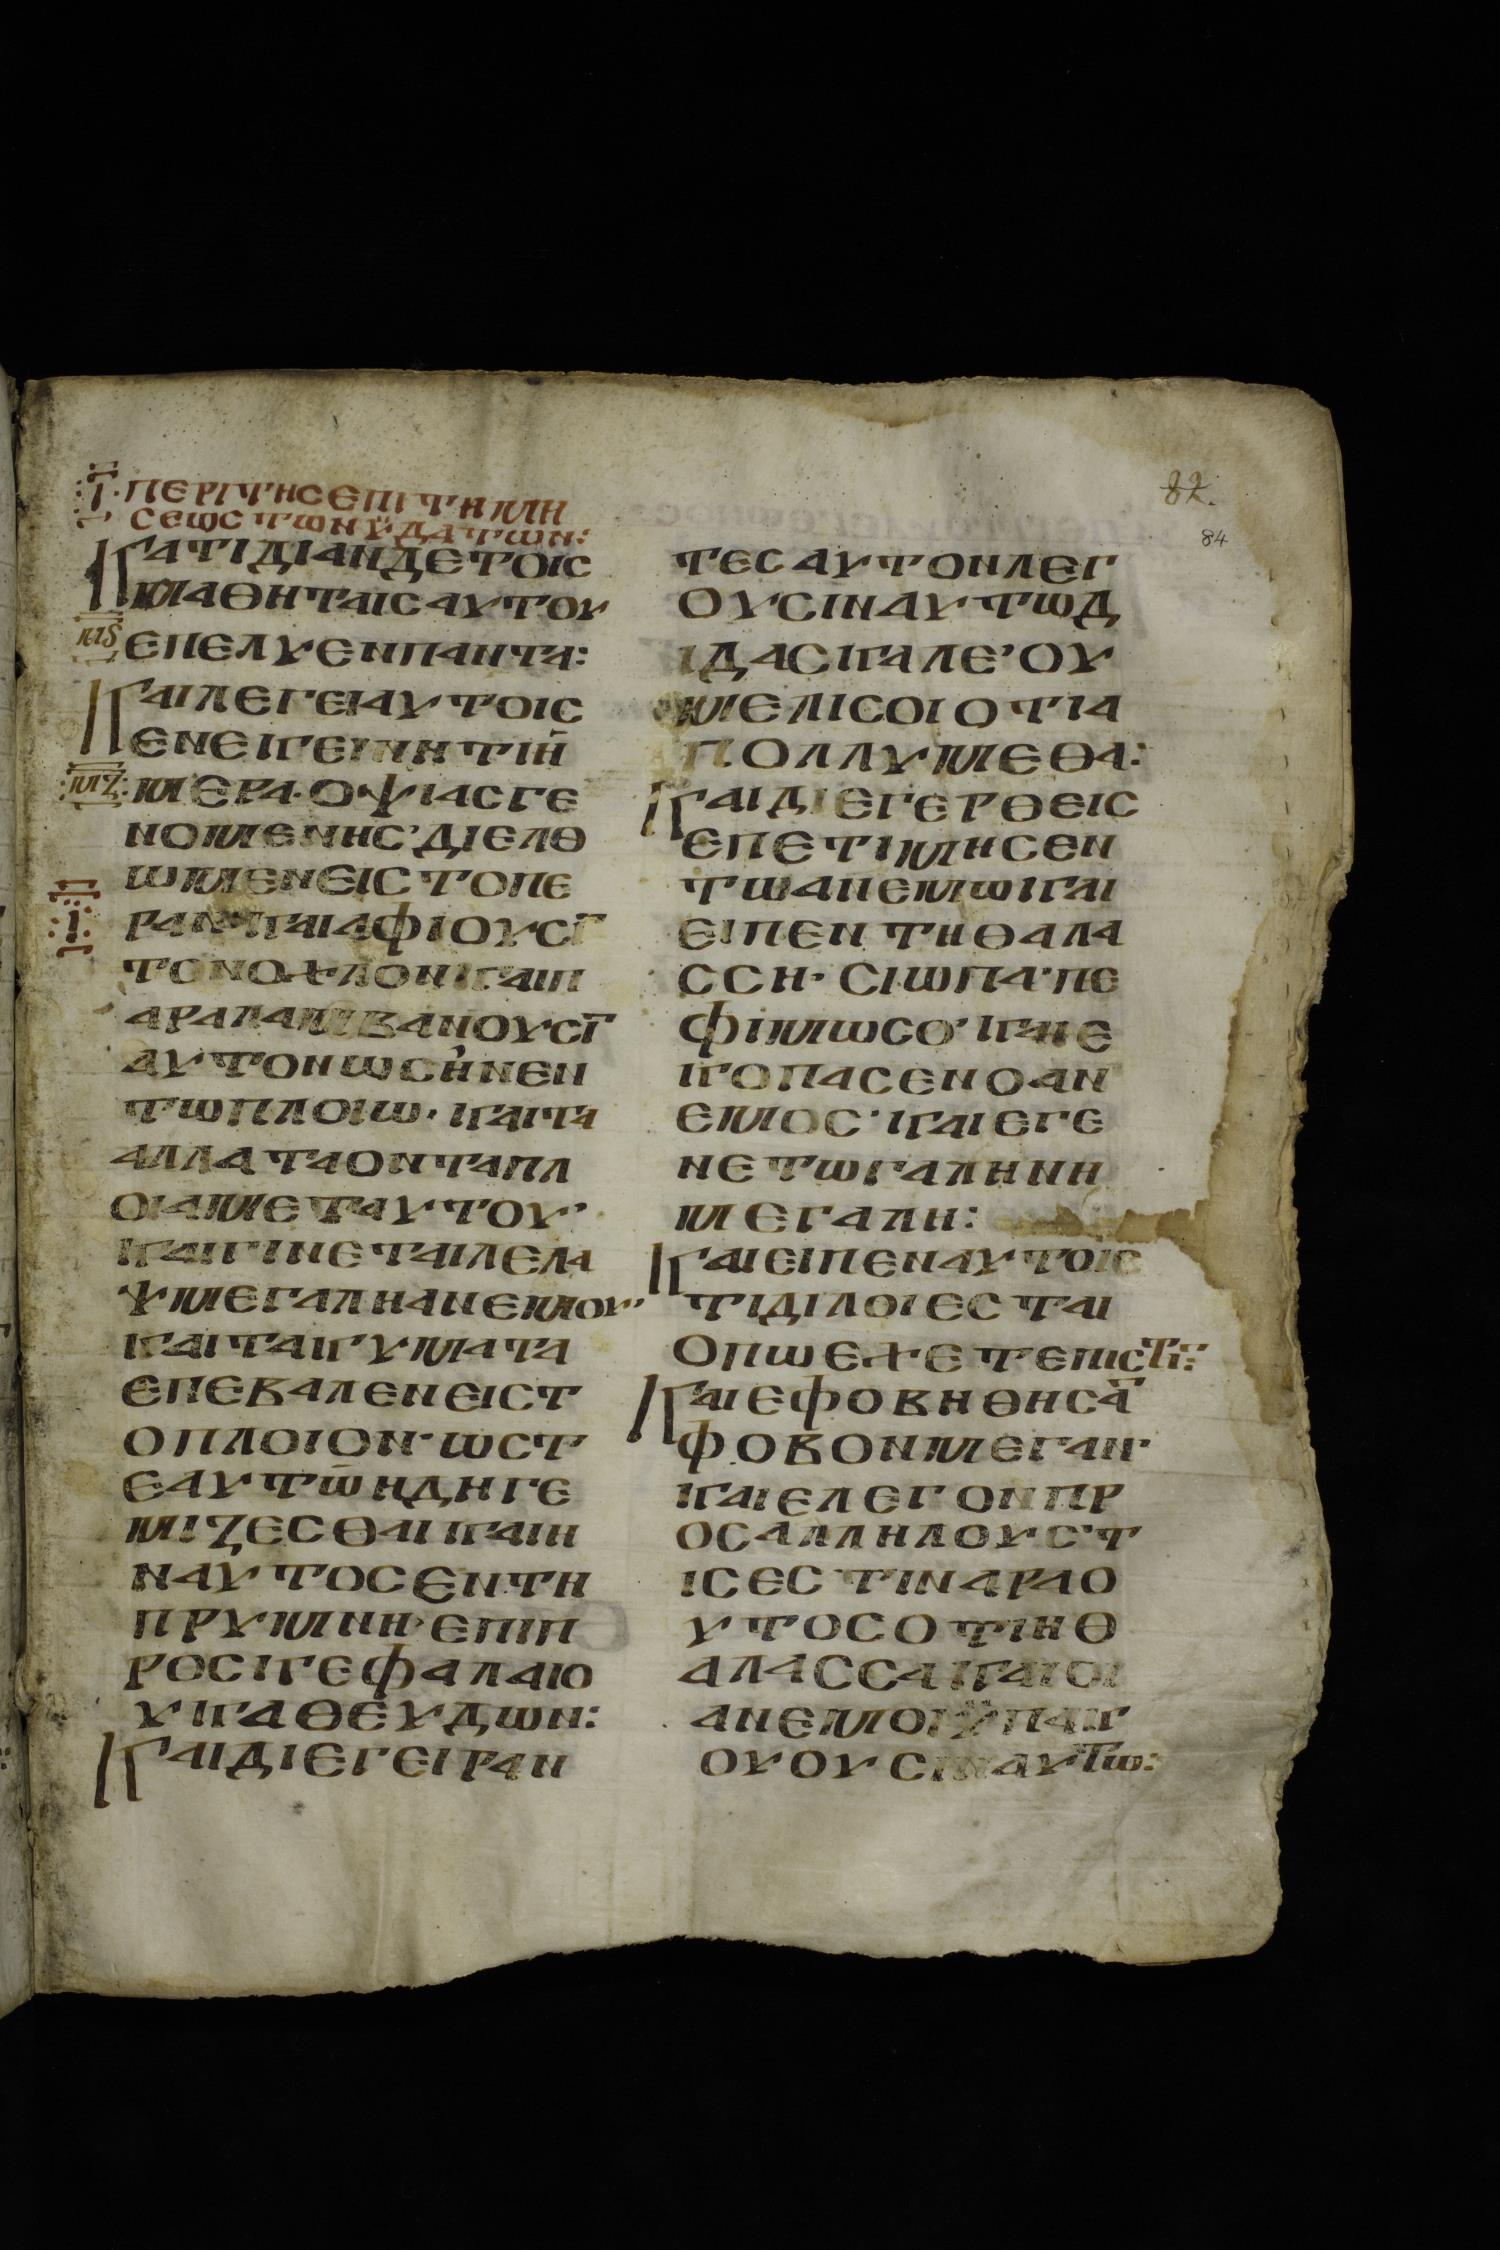 82.
84
Γ· ΠΕΡΙΤΗϹΕΠΙΤΗΜΗ
ϹΕωϹΤωΝΫΔΑΤωΝ:
ΚΑΤΙΔΙΑΝΔΕΤΟΙϹ
ΜΑΘΗΤΑΙϹΑΥΤΟΥ
Μϛ ΕΠΕΛΥΕΝΠΑΝΤΑ:
ΚΑΙΛΕΓΕΙΑΥΤΟΙϹ
ΕΝΕΙΚΕΙΝΗΤΙΗ̄
ΜΖ: ΜΕΡΑ·ΟΨΙΑϹΓΕ
ΝΟΜΕΝΗϹ·ΔΙΕΛΘ
ωΜΕΝΕΙϹΤΟΠΕ
Ι ΡΑΝΚΑΙΑΦΙΟΥϹῙ
ΤΟΝΟΧΛΟΝΚΑΙΠ
ΑΡΑΛΑΜΒΑΝΟΥϹῙ
ΑΥΤΟΝωϹΗΝΕΝ
ΤωΠΛΟΙω·ΚΑΙΤΑ
ΑΛΛΑΤΑΟΝΤΑΠΛ
ΟΙΑΜΕΤΑΥΤΟΥ·
ΚΑΙΓΙΝΕΤΑΙΛΕΛΑ
ΨΜΕΓΑΛΗΑΝΕΜΟΥ·
ΚΑΙΤΑΚΥΜΑΤΑ
ΕΠΕΒΑΛΕΝΕΙϹΤ
ΟΠΛΟΙΟΝ·ωϹΤ
ΕΑΥΤω̄ΗΔΗΓΕ
ΜΙΖΕϹΘΑΙΚΑΙΗ
ΝΑΥΤΟϹΕΝΤΗ
ΠΡΥΜΝΗ·ΕΠΙΠ
ΡΟϹΚΕΦΑΛΑΙΟ
ΥΚΑΘΕΥΔωΝ:
ΚΑΙΔΙΕΓΕΙΡΑΝ
ΤΕϹΑΥΤΟΝΛΕΓ
ΟΥϹΙΝΑΥΤωΔ
ΙΔΑϹΚΑΛΕ·ΟΥ
ΜΕΛΙϹΟΙΟΤΙΑ
ΠΟΛΛΥΜΕΘΑ:
ΚΑΙΔΙΕΓΕΡΘΕΙϹ
ΕΠΕΤΙΜΗϹΕΝ
ΤωΑΝΕΜωΚΑΙ
ΕΙΠΕΝΤΗΘΑΛΑ
ϹϹΗ·ϹΙωΠΑ·ΠΕ
ΦΙΜωϹΟ·ΚΑΙΕ
ΚΟΠΑϹΕΝΟΑΝ
ΕΜΟϹ·ΚΑΙΕΓΕ
ΝΕΤωΓΑΛΗΝΗ
ΜΕΓΑΛΗ:
ΚΑΙΕΙΠΕΝΑΥΤΟΙϹ
ΤΙΔΙΛΟΙΕϹΤΑΙ
ΟΠωΕΧΕΤΕΠΙϹΤῙ:
ΚΑΙΕΦΟΒΗΘΗϹᾹ
ΦΟΒΟΝΜΕΓΑΝ·
ΚΑΙΕΛΕΓΟΝΠΡ
ΟϹΑΛΛΗΛΟΥϹ·Τ
ΙϹΕϹΤΙΝΑΡΑΟ
ΥΤΟϹΟΤΙΗΘ
ΑΛΑϹϹΑΚΑΙΟΙ
ΑΝΕΜΟΙΫΠΑΚ
ΟΥΟΥϹΙΝΑΥΤω: